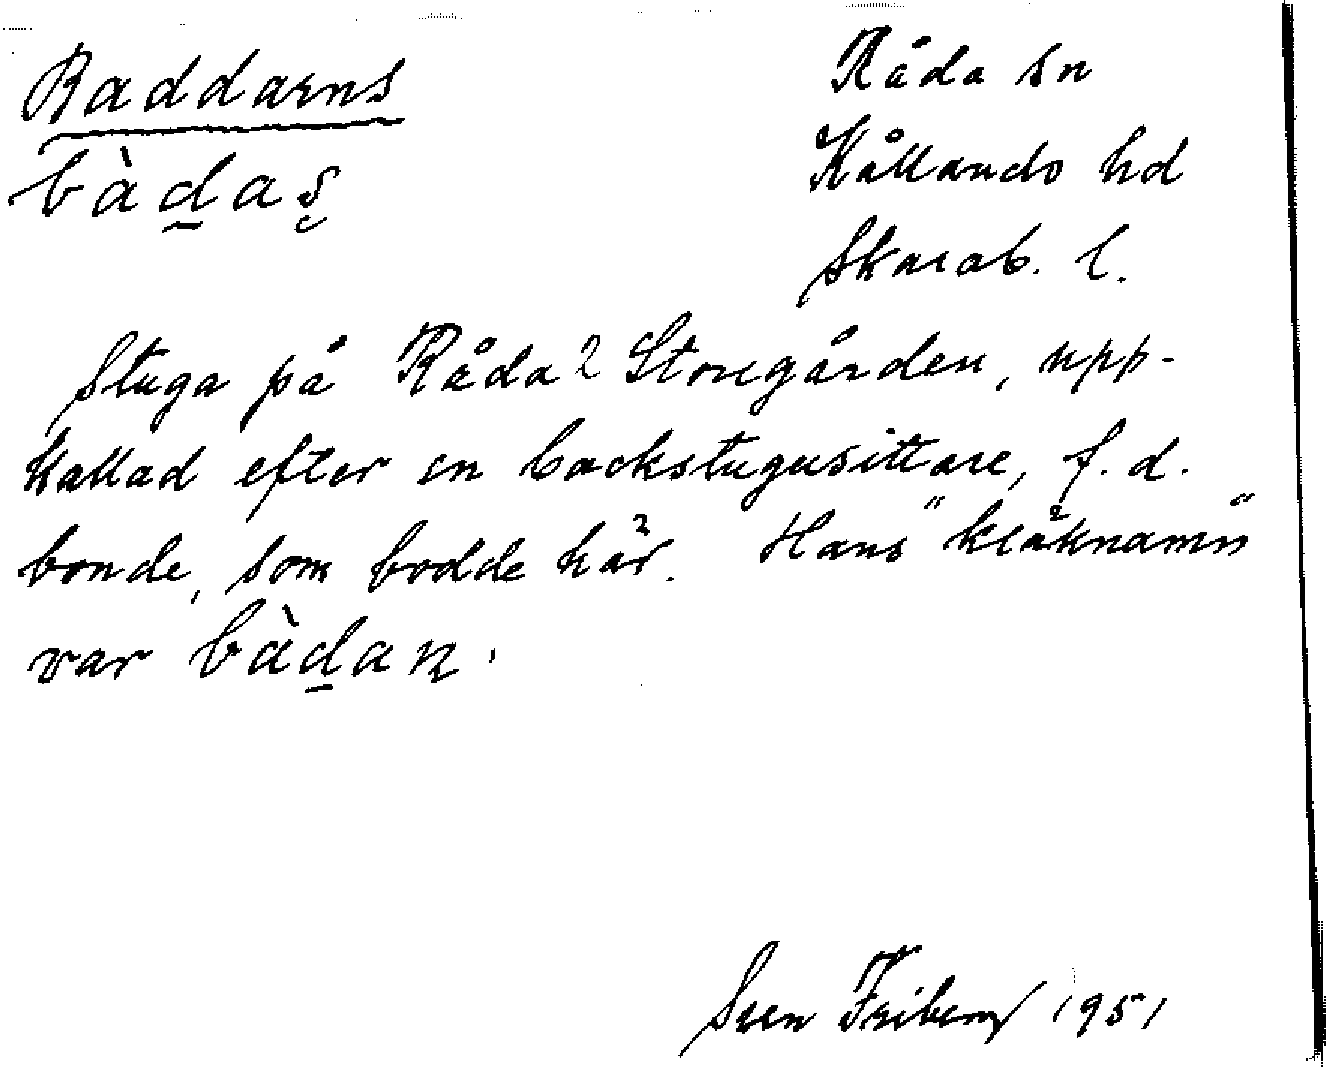 Baddarns
bàdas
Råda sn
Kållands hd
Skarab. l.
Stuga på Råda 2 Storegården, upp-
kallad efter en backstugusittare, f.d.
bonde, som bodde här. Hans "kläknamn"
var bàdan.
Sven Friberg 1951